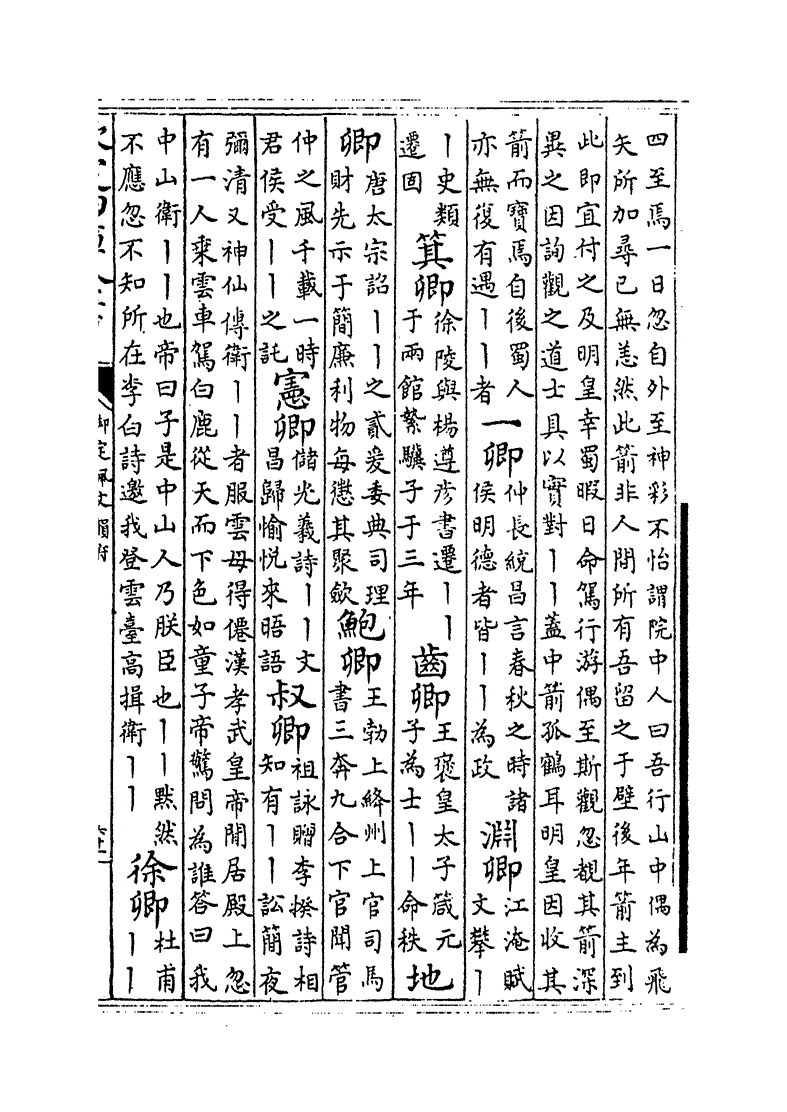 四至焉一日忽自外至神彩不怡謂院中人曰吾行山中偶為飛
矢所加尋已無恙然此箭非人間所有吾留之于壁後年箭主到
此即宜付之及明皇幸蜀暇日命駕行游偶至斯觀忽覩其箭深
異之因詢觀之道士具以實對丨丨蓋中箭孤鶴耳明皇因收其
箭而寶焉自後蜀人
亦無復有遇丨丨者
一卿
仲長統昌言春秋之時諸
侯明德者皆丨丨為政
淵卿
江淹賦
文攀丨
丨史類
遷固
箕卿
徐陵與楊遵彦書遷丨丨
于兩館縶驥子于三年
齒卿
王褒皇太子箴元
子為士丨丨命秩
地
卿
唐太宗詔丨丨之貳爰委典司理
財先示于簡廉利物每懲其聚歛
鮑卿
王勃上絳州上官司馬
書三奔九合下官聞管
仲之風千載一時
君侯受丨丨之託
憲卿
儲光羲詩丨丨文
昌歸愉悦來晤語
叔卿
祖詠贈李揆詩相
知有丨丨訟簡夜
彌清又神仙傳衛丨丨者服雲母得僊漢孝武皇帝閒居殿上忽
有一人乘雲車駕白鹿從天而下色如童子帝驚問為誰答曰我
中山衛丨丨也帝曰子是中山人乃朕臣也丨丨黙然
不應忽不知所在李白詩邀我登雲臺高揖衛丨丨
徐卿
杜甫
丨丨
御定佩文韻府